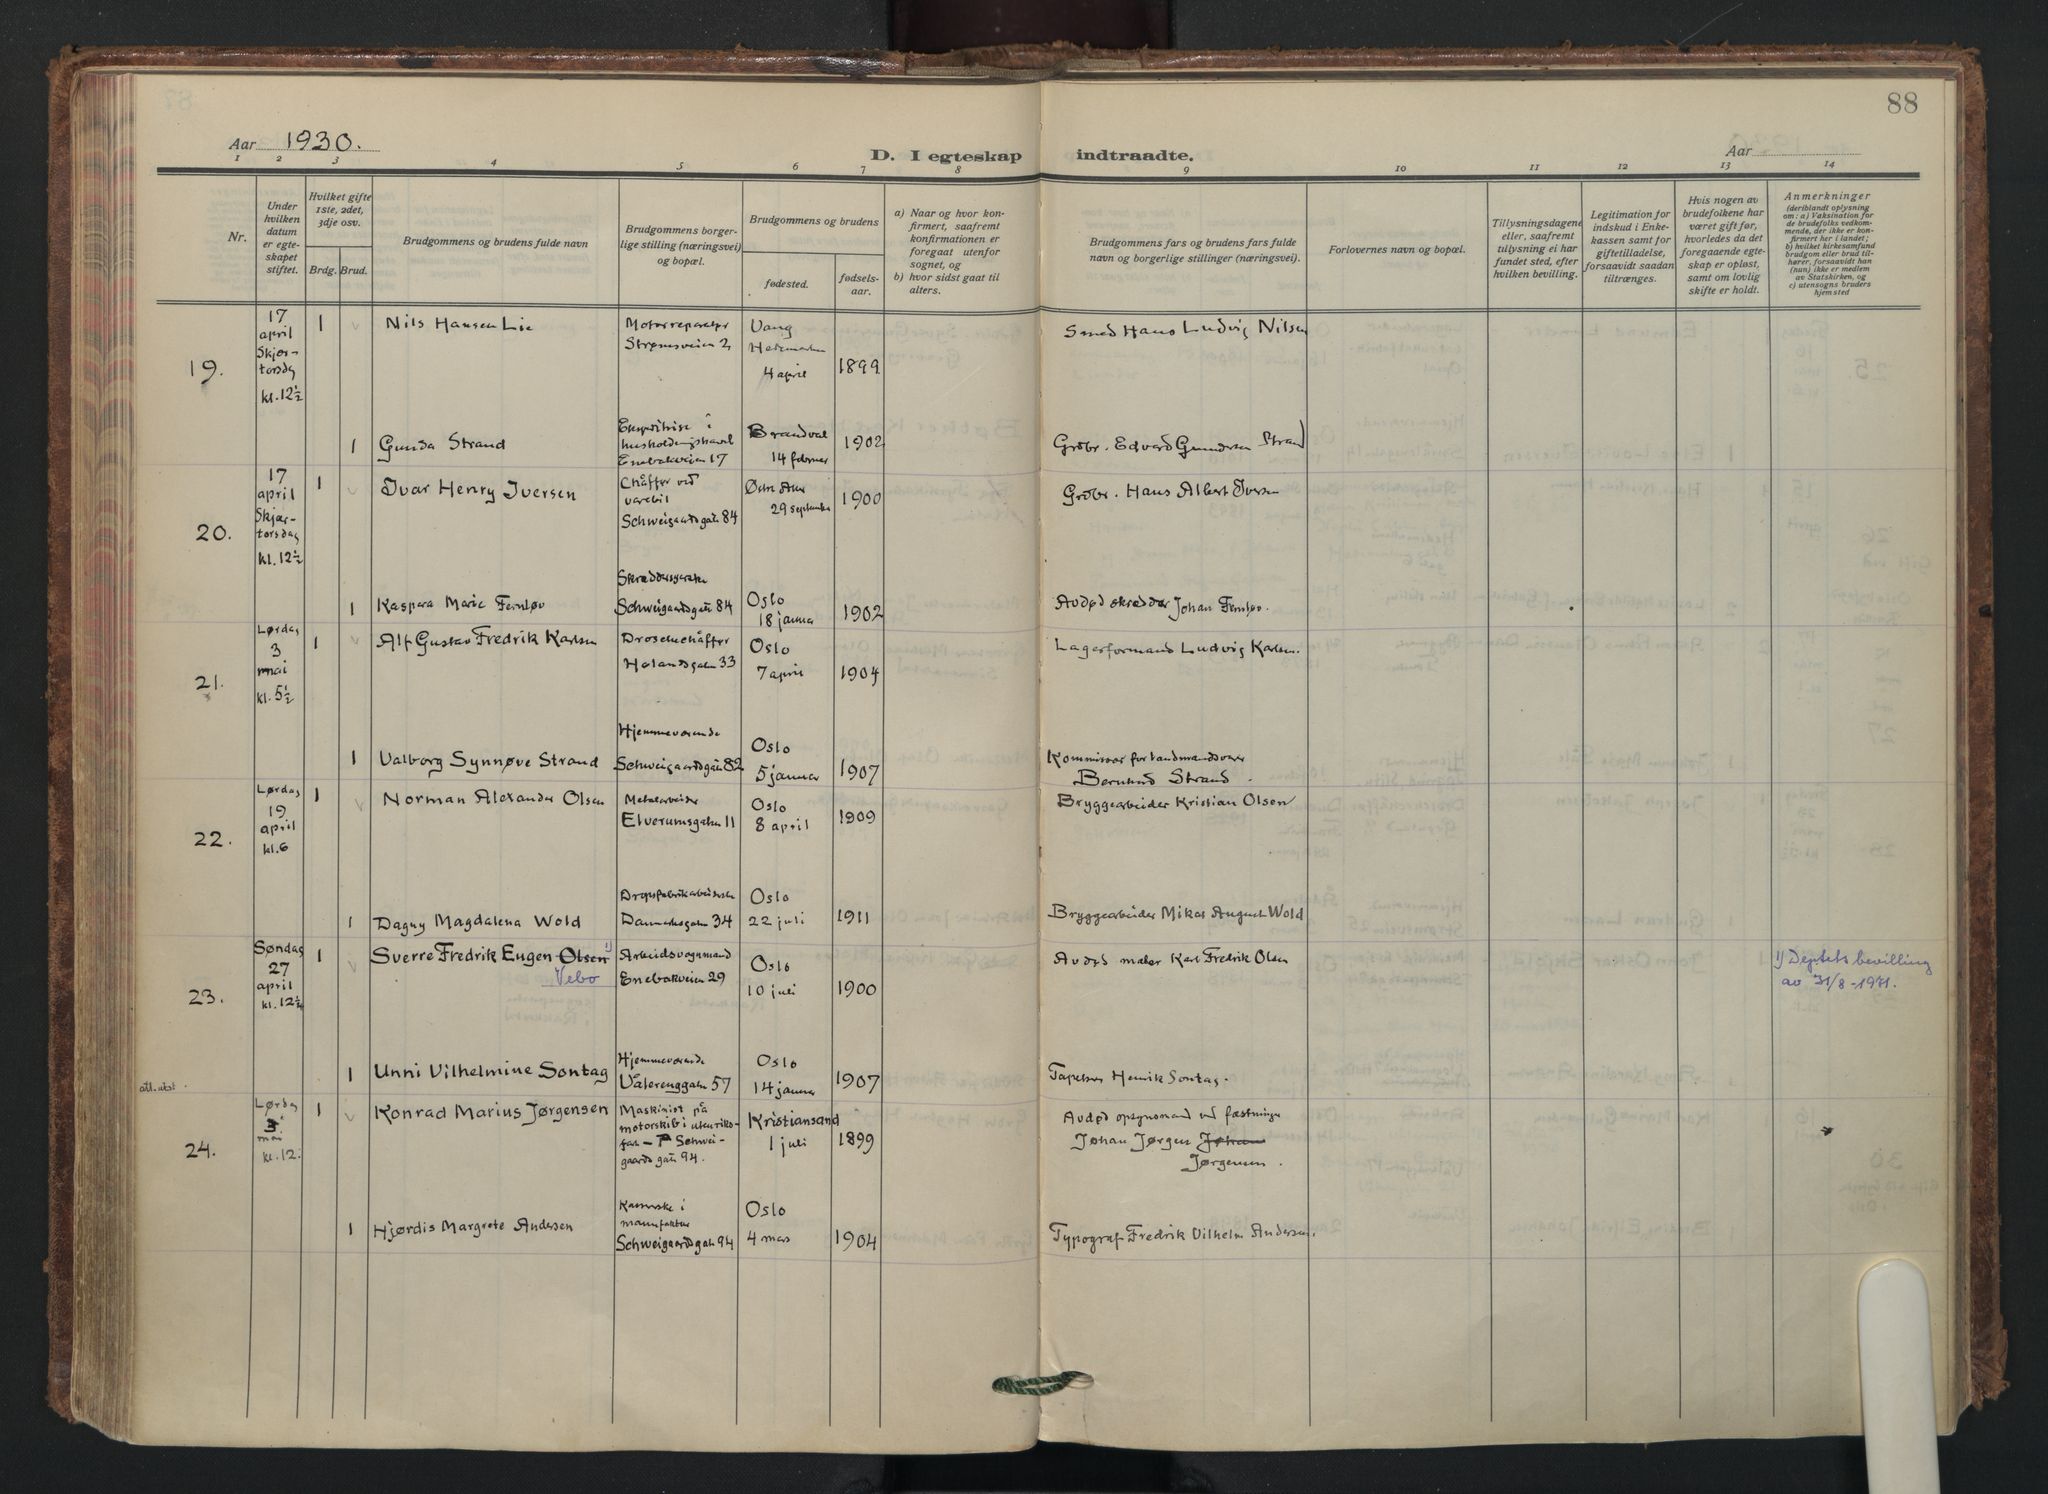 88
Aar 1930.
D. I egteskap indtraadte.
Aar
1 2 3 4 5 6 7 8 9 10 11 12 13 14
Nr.
Under hvilken datum er egteskapet stiftet.
Hvilket gifte 1ste, 2det, 3dje osv.
Brdg. Brud.
Brudgommens og brudens fulde navn
Brudgommens borgerlige stilling (næringsvei) og bopæl.
Brudgommens og brudens
fødested.
fødselsaar.
a) Naar og hvor konfirmert, saafremt konfirmationen er foregaat utenfor sognet, og
b) hvor sidst gaat til alters.
Brudgommens fars og brudens fars fulde navn og borgerlige stillinger (næringsvei).
Forlovernes navn og bopæl.
Tillysningsdagene eller, saafremt tillysning ei har fundet sted, efter hvilken bevilling.
Legitimation for indskud i Enkekassen samt for giftetilladelse, forsaavidt saadan tiltrænges.
Hvis nogen av brudefolkene har været gift før, hvorledes da det foregaaende egteskap er opløst, samt om lovlig skifte er holdt.
Anmerkninger
(deriblandt oplysning om: a) Vaksination for de brudefolks vedkommende, der ikke er konfirmert her i landet; b) hvilket kirkesamfund brudgom eller brud tilhører, forsaavidt han (hun) ikke er medlem av Statskirken, og c) utensogns bruders hjemsted
19.
17 april Skjærtorsdag kl. 12½
1 Nils Hansen Lie
Motorreparatør
Strømsveien 2
Vang
Hedemarken
4 april
1899
Smed Hans Ludvig Nilsen
1 Gunda Strand
Ekspeditrise i
Enebakveien 17
Brandval
14 februar
1902
Grdbr. Edvard Gundersen Strand
20.
17 april Skjærtorsdag kl. 12½
1 Ivar Henry Iversen
Chåffør ved
varebil
Schweigaardsgatn 84
Østre Aker
29 september
1900
Grdbr. Hans Albert Iversen
1 Kaspara Marie Fernløv
Skræddersyerske
Schweigaardsgatn 84
Oslo
18 januar
1902
Avdød skrædder Johan Fernløv.
21.
Lørdag 3 mai kl. 5½
1 Alf Gustav Fredrik Karlsen
Droschechåffør
Hølandsgaten 33
Oslo
7 april
1904
Lagerformand Ludvig Karlsen.
1 Valborg Synnøve Strand
Hjemmeværende
Schweigaardsgatn 82
Oslo
5 januar
1907
Bernhard Strand.
22.
Lørdag 19 april kl. 6
1 Norman Alexander Olsen
Metalarbeider
Elverumsgaten 11
Oslo
8 april
1909
Bryggearbeider Kristian Olsen
1 Dagny Magdalena Wold
Dropsfabrikarbeiderske
Danmarksgaten 34
Oslo
22 juli
1911
Bryggearbeider Mikal August Wold
23.
Søndag 27 april kl. 12¼
1 Sverre Fredrik Eugen Olsen 1)
Vebo
Arbeidsvognmand
Enebakveien 29
Oslo
10 juli
1900
Avdød maler Karl Fredrik Olsen
1) Deptets bevilling
av 31/8 - 1931.
1 Unni Vilhelmine Søntag
Hjemmeværende
Vålerenggaten 57
Oslo
14 januar
1907
Tapetserer Henrik Søntag.
att. utst.
24.
Lørdag 3 mai kl. 12
1 Konrad Marius Jørgensen
Maskinist på
motorskib i utenriksfart - Schweigaardsgatn 94.
Kristiansand
1 juli
1899
Avdød opsynsmand ved fæstningen
Johan Jørgen Johan
Jørgensen.
1 Hjørdis Margrete Andersen
Kasserske i
manufaktur
Schweigaardsgatn 94
Oslo
4 mars
1904
Typograf Fredrik Vilhelm Andersen.